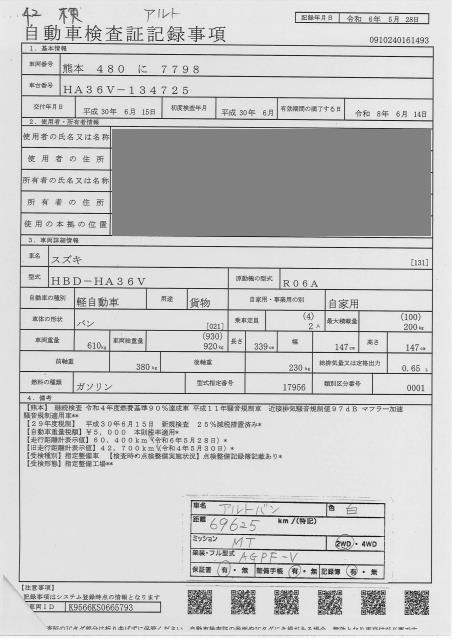 検 アルト
記録年月日 令和 6年 5月 28日
自動車検査証記録事項
0910240161493
1. 基本情報
車両番号 熊本 480 に 7798
車台番号 HA36V-134725
交付年月日 平成 30年 6月 15日 初度検査年月 平成 30年 6月 有効期間の満了する日 令和 8年 6月 14日
2. 使用者・所有者情報
使用者の氏名又は名称
使用者の住所
所有者の氏名又は名称
所有者の住所
使用の本拠の位置
3. 車両詳細情報
車名 スズキ [131]
型式 HBD-HA36V 原動機の型式 R06A
自動車の種別 軽自動車 用途 貨物 自家用・事業用の別 自家用
車体の形状 バン [021] 乗車定員 (4) 2人 最大積載量 (100) 200kg
車両重量 610kg 車両総重量 (930) 920kg 長さ 339cm 幅 147cm 高さ 147cm
前軸重 380kg 後軸重 230kg 総排気量又は定格出力 0.65 L
燃料の種類 ガソリン 型式指定番号 17956 類別区分番号 0001
4. 備考
【熊本】 継続検査 令和4年度燃費基準90%達成車 平成11年騒音規制車 近接排気騒音規制値97dB マフラー加速
騒音規制適用車**
【29年度税制】 平成30年6月15日 新規検査 25%減税措置済み*
【自動車重量税額】 ¥5,000 本則税率適用*
【走行距離計表示値】 60,400km (令和6年5月28日)*
【旧走行距離計表示値】 42,700km (令和4年5月30日)*
【受検種別】 指定整備車 【検査時の点検整備実施状況】 点検整備記録簿記載あり*
【受検形態】 指定整備工場**
車名 アルトバン 色 白
距離 69625 km/(特記)
ミッション MT 2WD・4WD
架装・フル型式 AGPF-V
保証書 有・無 整備手帳 有・無 記録簿 有・無
【注意事項】
記録事項はシステム登録時点の情報となります
車両ID K9566KS0665793